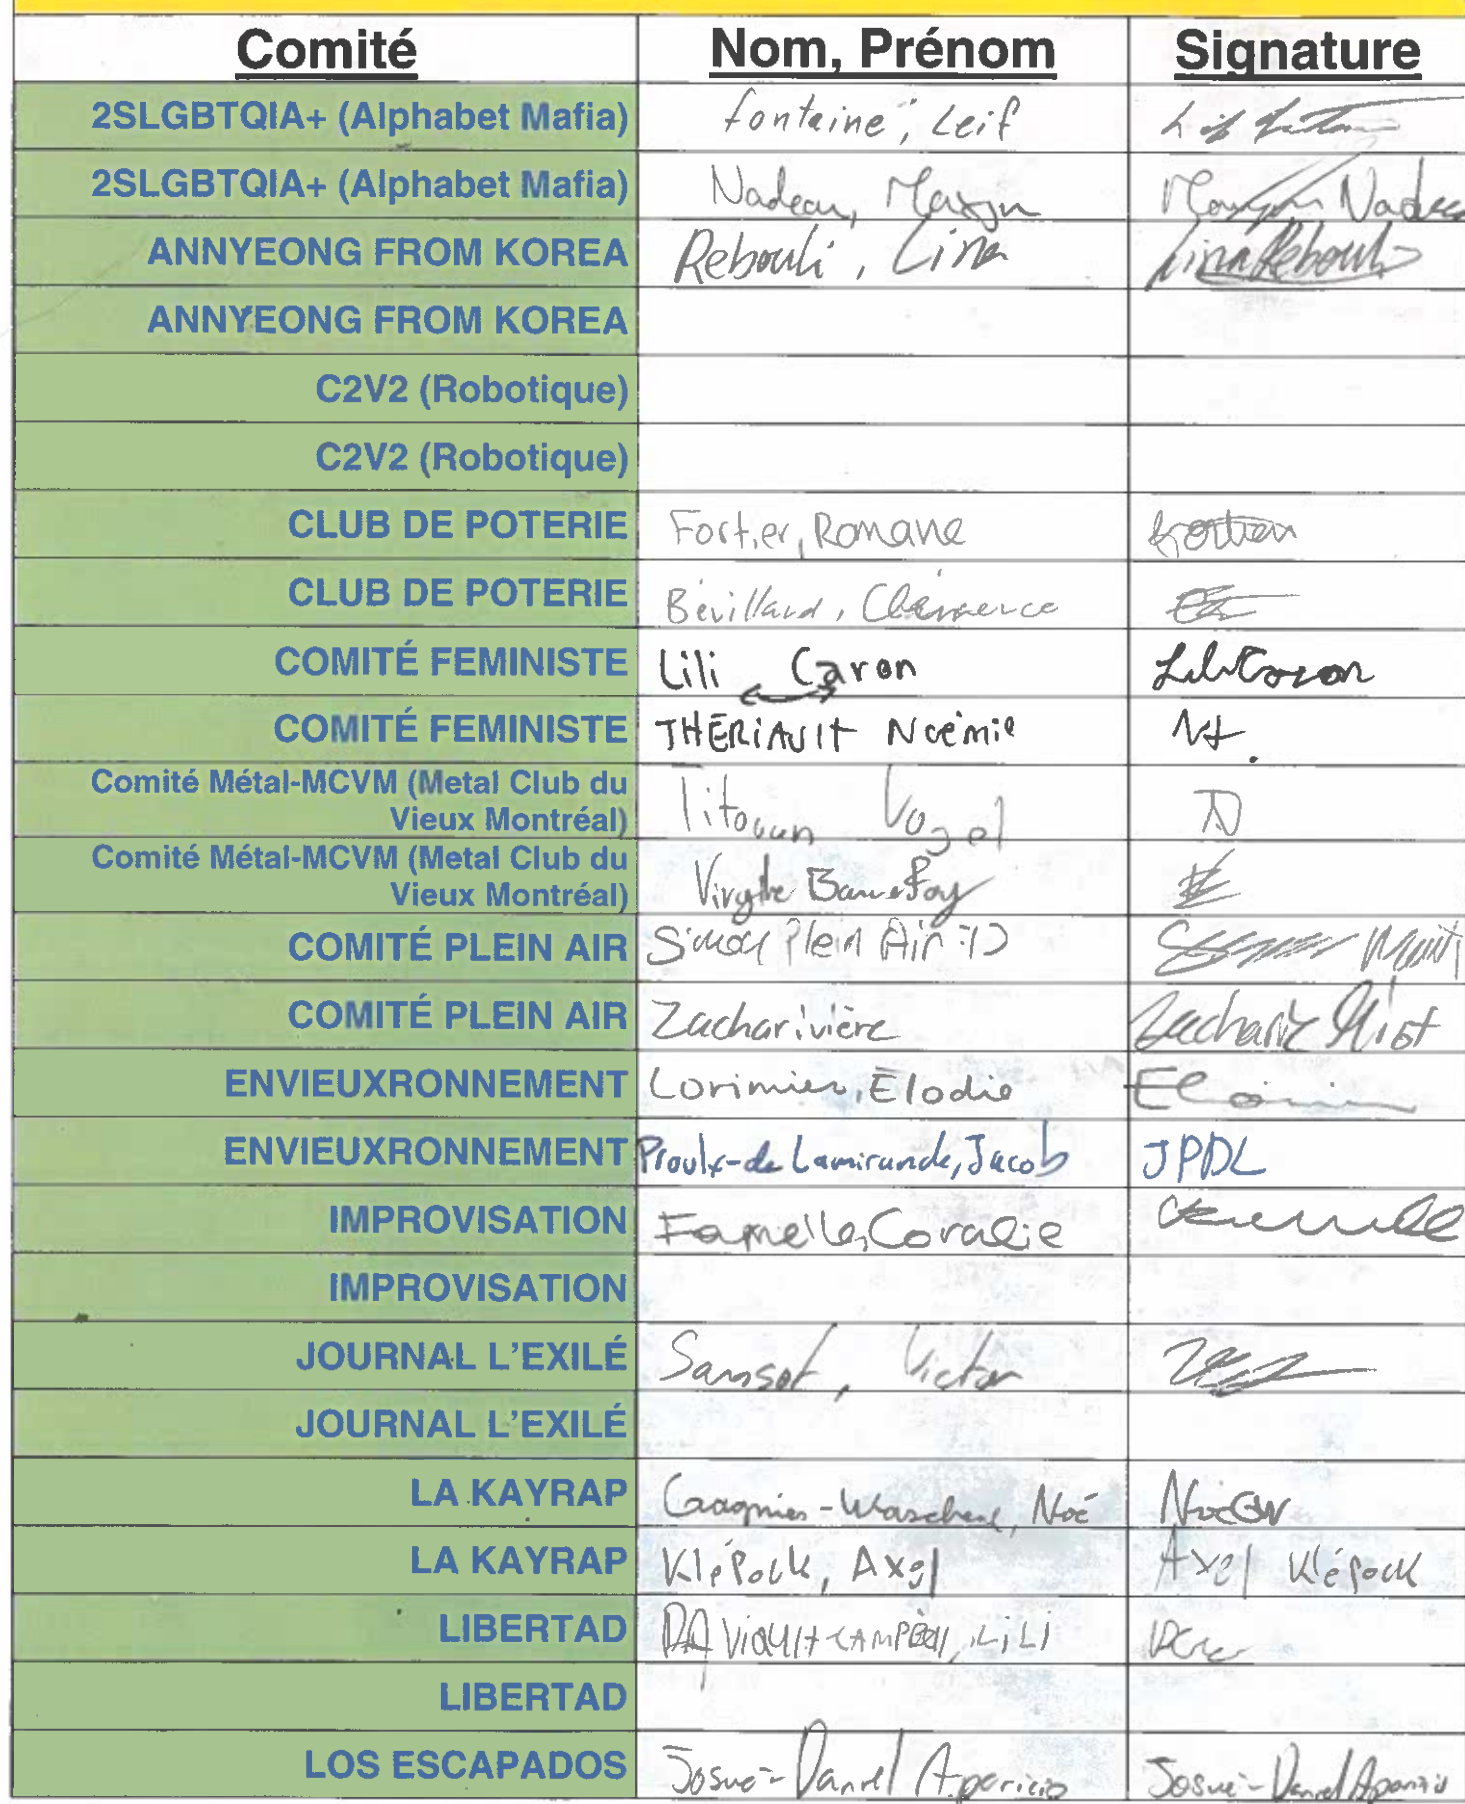 Comité Nom, Prénom Signature
2SLGBTQIA+ (Alphabet Mafia) fontaine, Leif
2SLGBTQIA+ (Alphabet Mafia) Nadeau, Nadeau
ANNYEONG FROM KOREA Rebouli, Lina Lina Rebouli
ANNYEONG FROM KOREA
C2V2 (Robotique)
C2V2 (Robotique)
CLUB DE POTERIE Fortier, Romane Fortier
CLUB DE POTERIE Bévillard, Clémence
COMITÉ FEMINISTE Lili Caron Lili Caron
COMITÉ FEMINISTE THÉRIAUlt Noémie Nt.
Comité Métal-MCVM (Metal Club du
Vieux Montréal) Titouan Vogel
Comité Métal-MCVM (Metal Club du
Vieux Montréal) Virgile
COMITÉ PLEIN AIR Simon Plein Air :D
COMITÉ PLEIN AIR Zacharivière Zacharie
ENVIEUXRONNEMENT Lorimier, Élodie
ENVIEUXRONNEMENT Proulx-de Lamirande, Jacob JPDL
IMPROVISATION Coralie
IMPROVISATION
JOURNAL L'EXILÉ Samsot, Victor
JOURNAL L'EXILÉ
LA KAYRAP Noé NoéGW
LA KAYRAP Klépock, Axel Axel Klépock
LIBERTAD LiLi
LIBERTAD
LOS ESCAPADOS Josué-Daniel Aparicio Josué-Daniel Aparicio